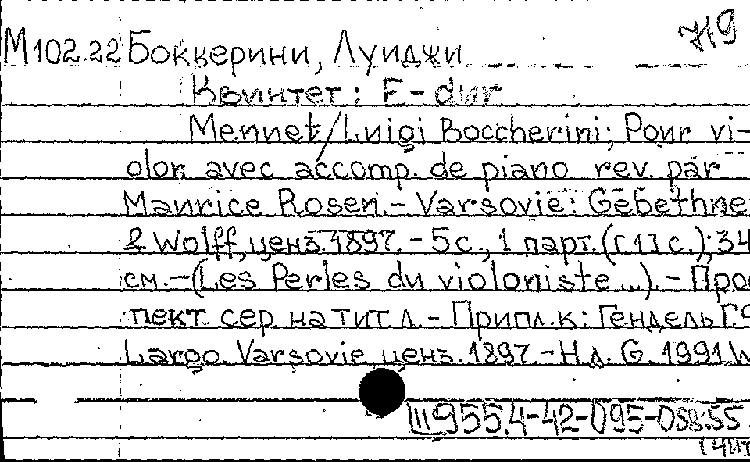 М102.22 Боккерини, Луиджи
Квинтет: E-dur
Menuet/Luigi Boccherini; Pour vi-
olon avec accomp. de piano rev. par
Maurice Rosen.- Varsovie: Gebethne
& Wolff, ценз. 1897. - 5 с., 1 парт. ( с.); 34
см. - (Les Perles du violoniste...). - Прос
пект сер. на тит л. - Припл. к: Гендель Г.Ф
Largo. Varsovie ценз. 1897. - Н.д. G. 1991 W
9554-42-095-